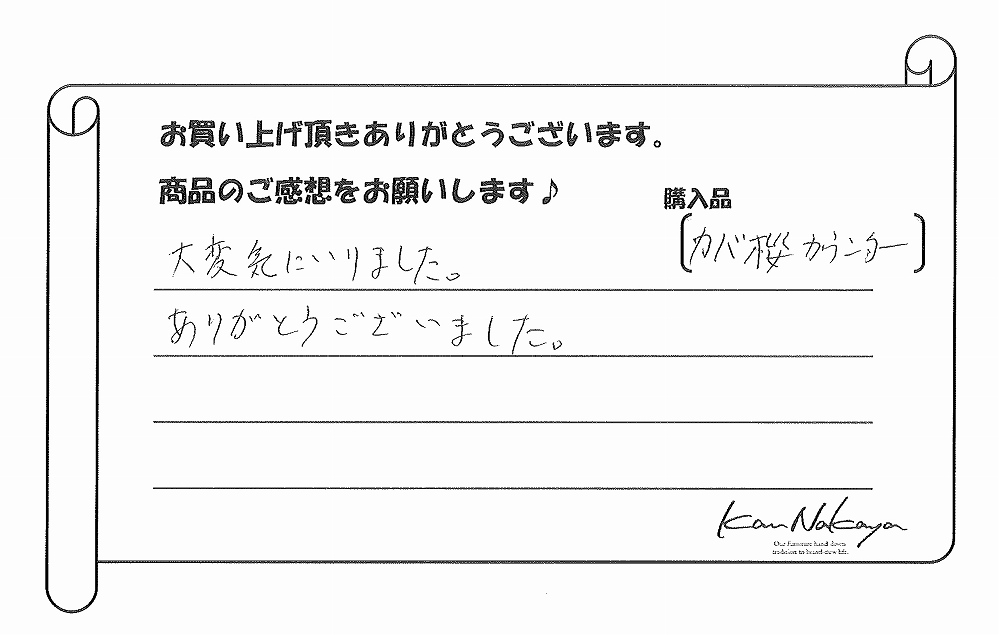 お買い上げ頂きありがとうございます。
商品のご感想をお願いします♪
購入品
カバ桜カウンター
大変気にいりました。
ありがとうございました。
Kan Nakaya
Our furniture hand down
tradition to brand-new life.